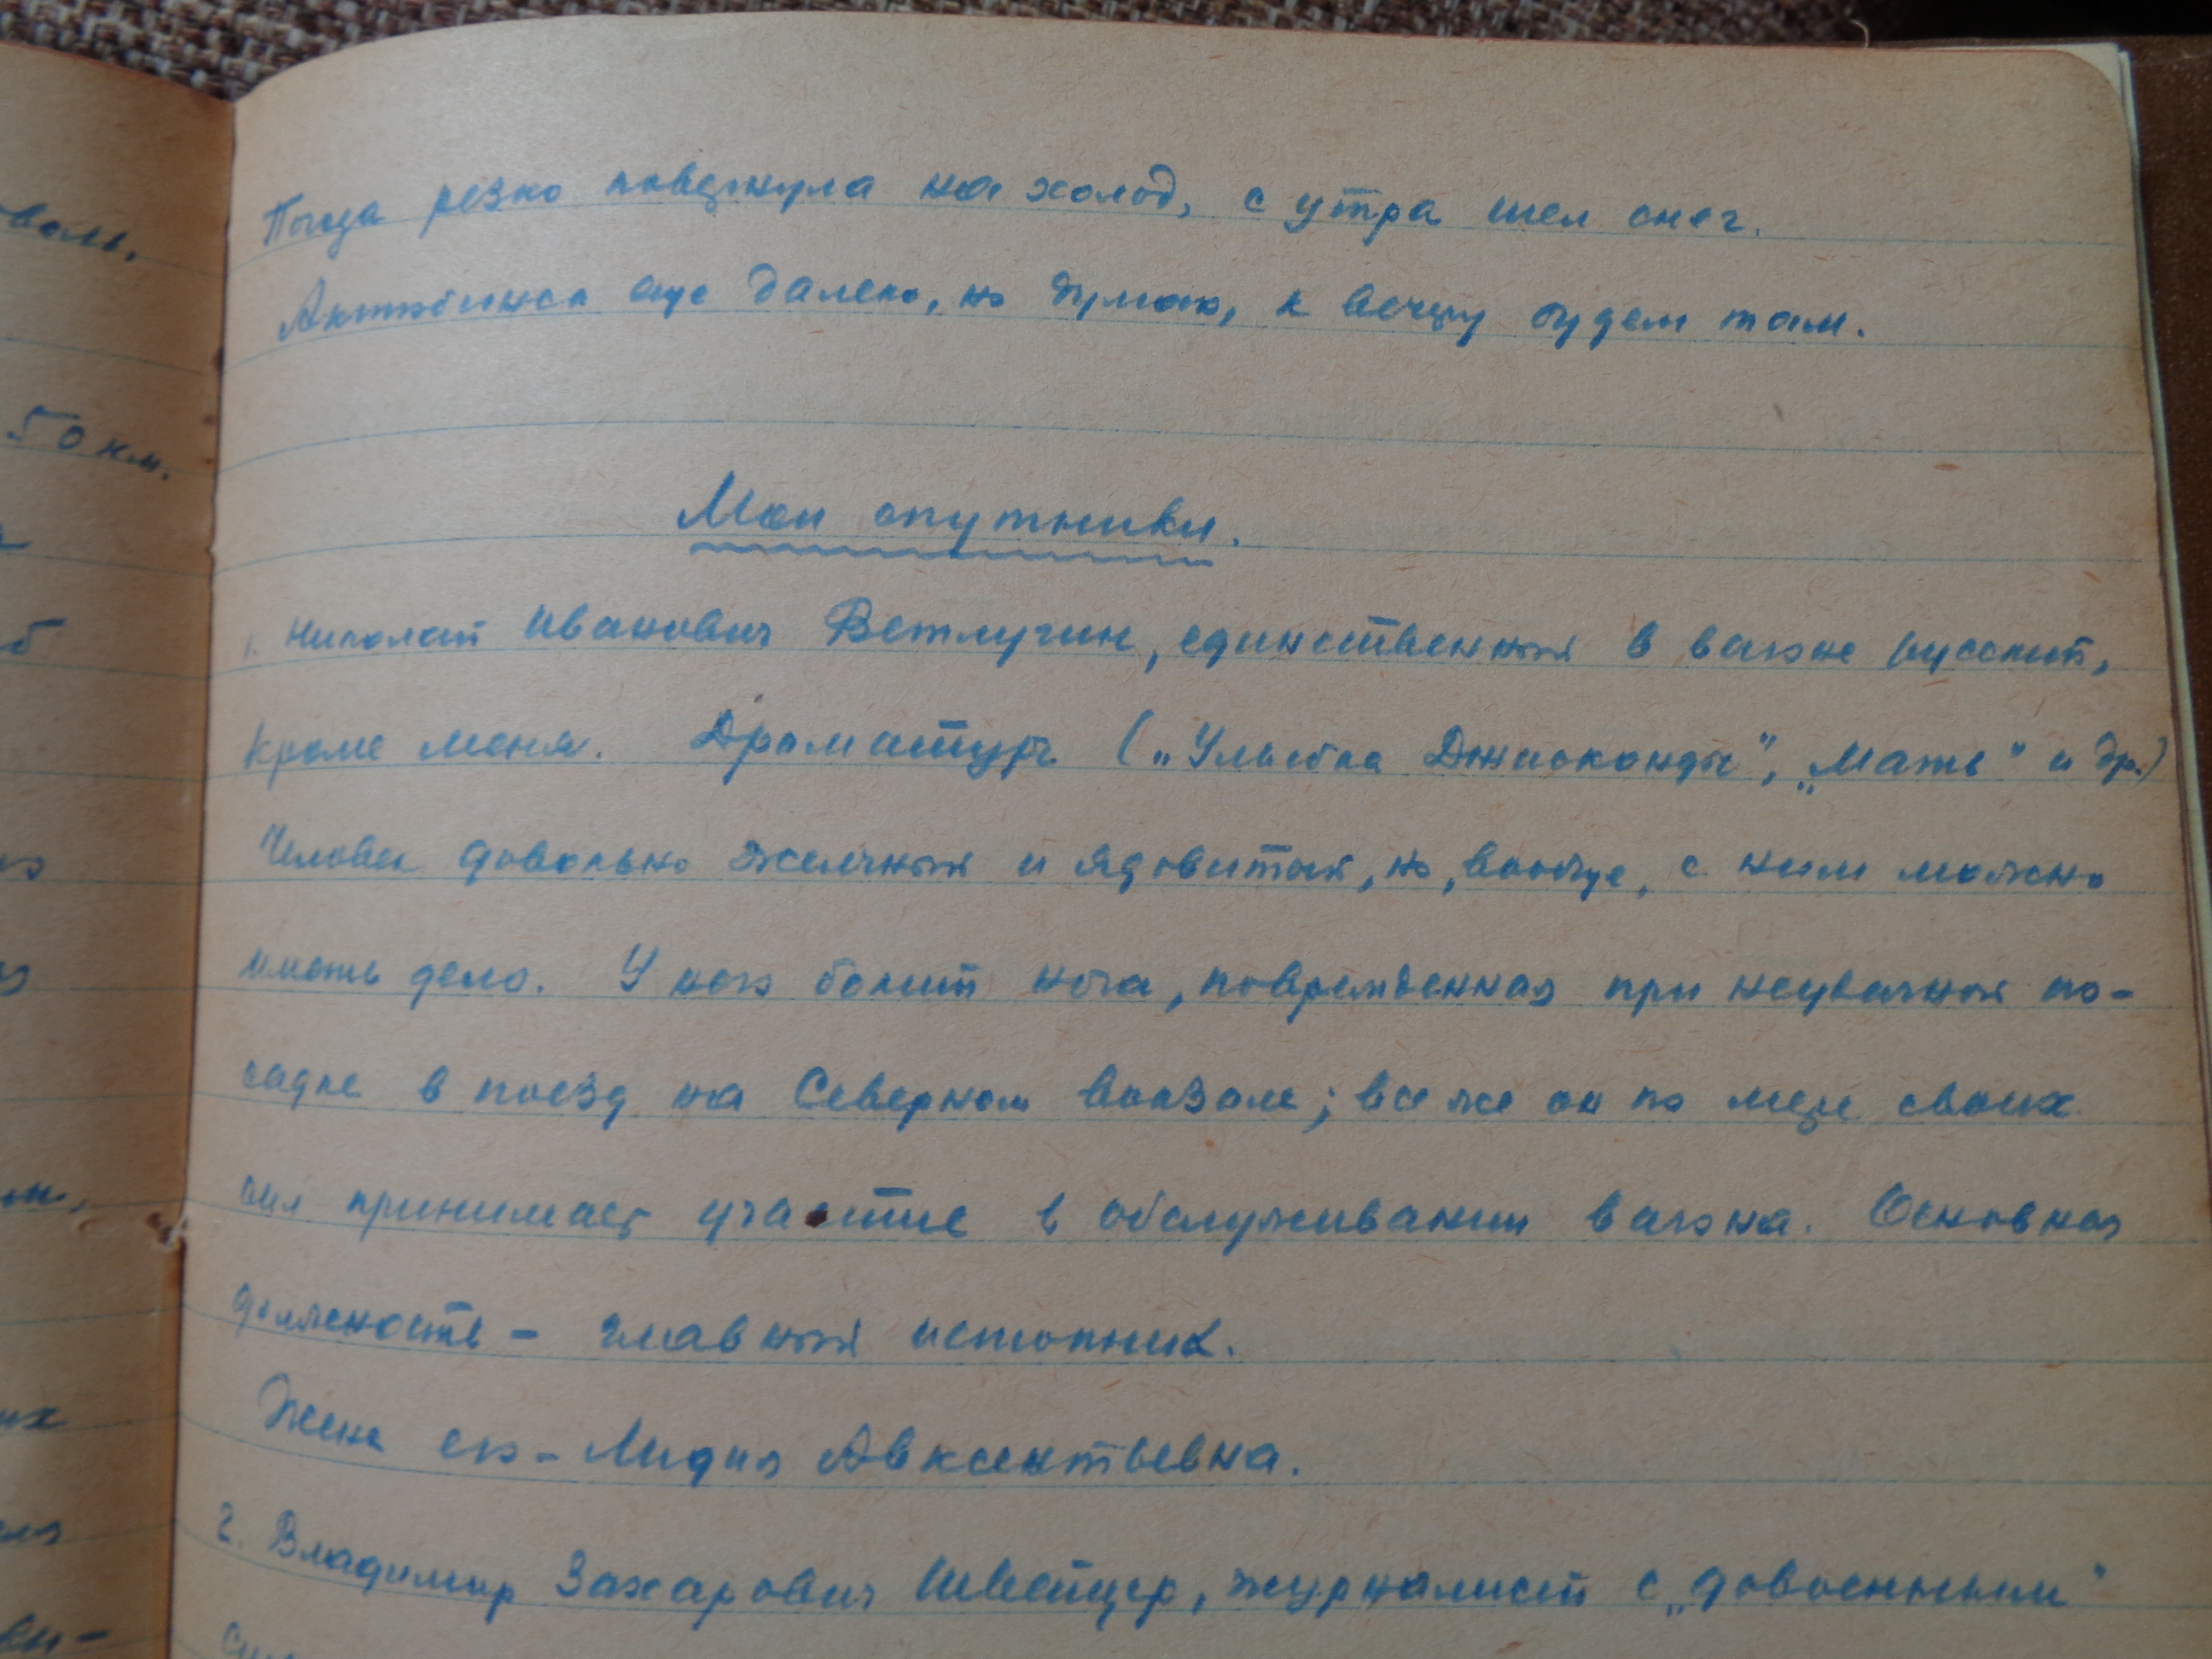 оваль,
50 км.
Погода резко повернула на холод, с утра шел снег.
Актюбинск еще далеко, но думаю, к вечеру будем там.
Мои спутники.
1. Николай Иванович Ветлугин, единственный в вагоне русский,
кроме меня. Драматург („Улыбка Джиоконды", „Мать" и др.)
Человек довольно желчный и ядовитый, но, вообще, с ним можно
иметь дело. У него болит нога, поврежденная при неудачной по-
садке в поезд на Северном вокзале; все же он по мере своих
сил принимает участие в обслуживании вагона. Основная
должность - главный истопник.
Жена его - Лидия Авксентьевна.
2. Владимир Захарович Швейцер, журналист с „довоенным"